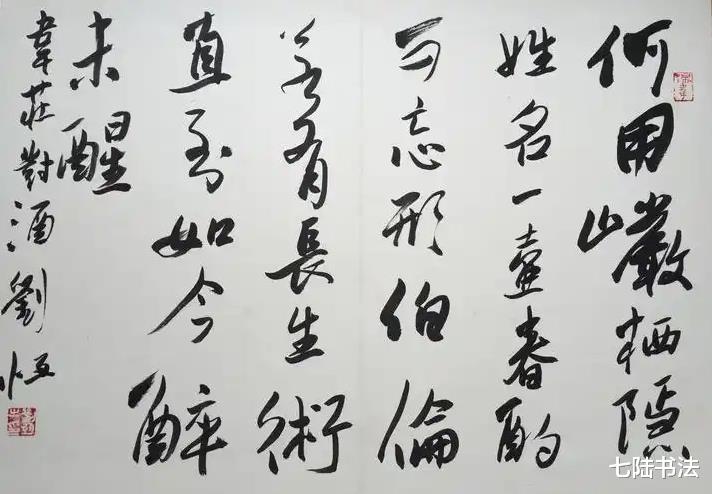 何用巖栖隱
姓名一壺春酌
可忘形伯倫
若有長生術
直到如今醉
未醒
韋莊對酒劉恒
七陆书法